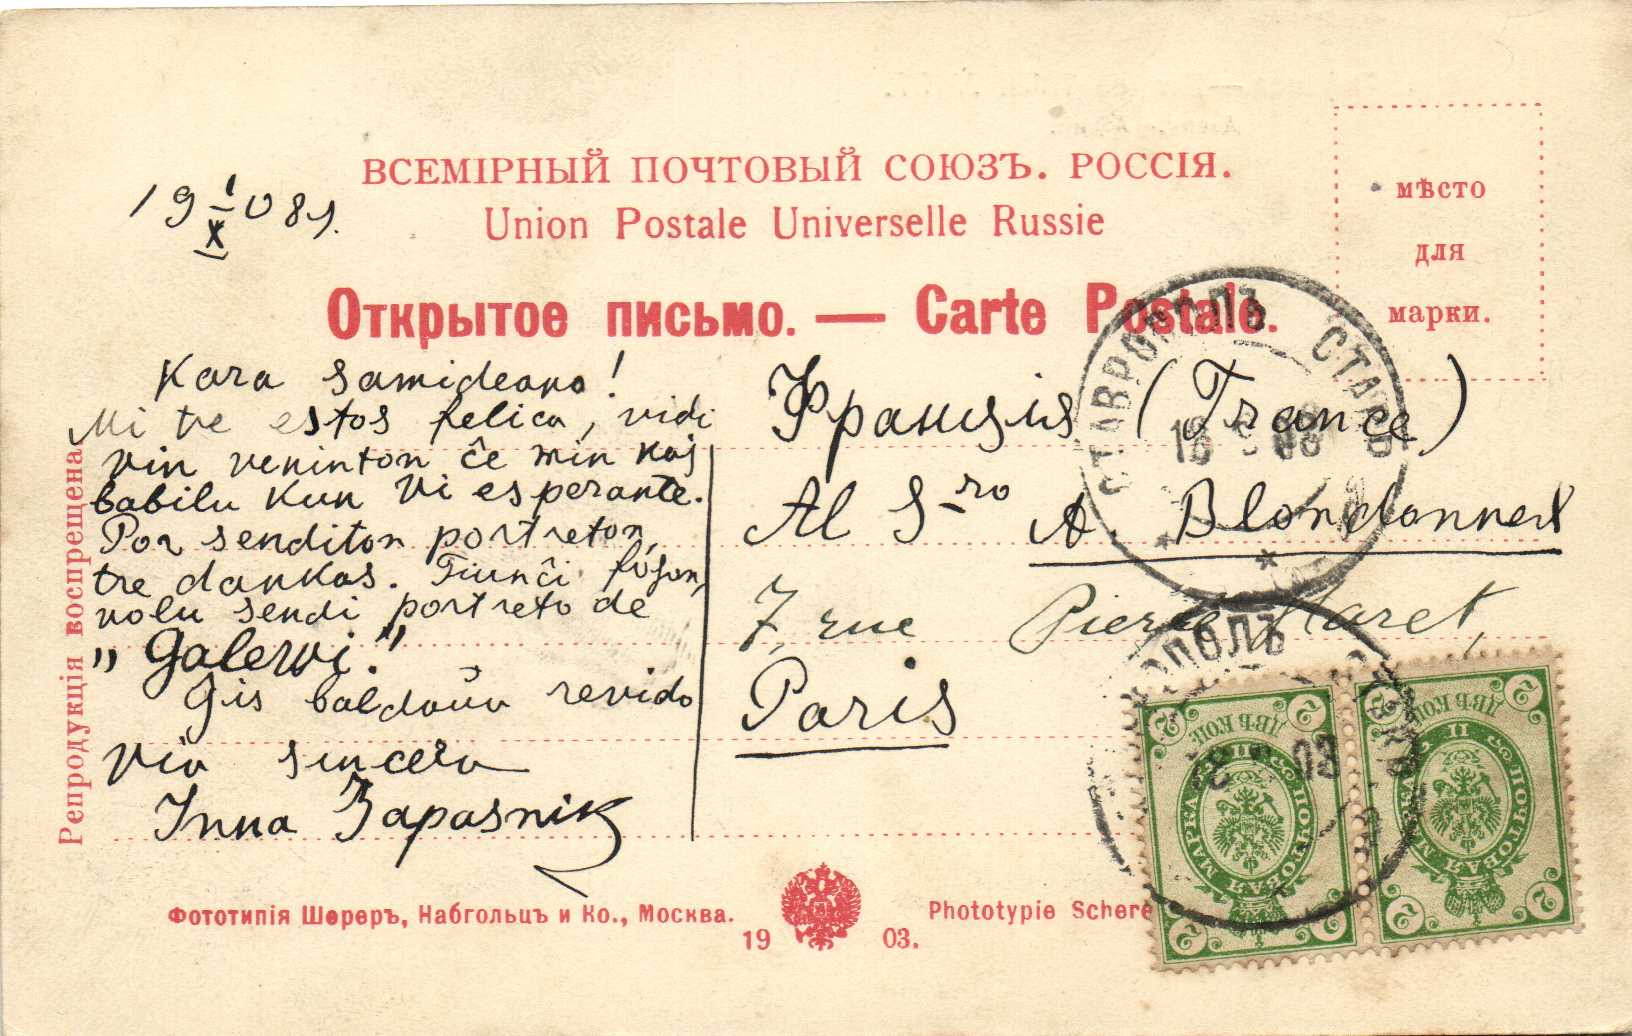 19 I/X 08 г.
ВСЕМІРНЫЙ ПОЧТОВЫЙ СОЮЗЪ. РОССІЯ.
Union Postale Universelle Russie
Открытое письмо. — Carte Postale.
мѣсто
для
марки.
Kara samideano!
Mi tre estos felica, vidi
vin veninton ĉe min kaj
babilu kun Vi esperante.
Por senditon portreton,
tre dankas. Tiunĉi fojon,
volu sendi portreto de
„Galewi."
Ĝis baldaŭa revido
Via sincera
Inna Zapasnik
Франція (France)
Al S-ro A. Blondonnet
7, rue Pierre Haret,
Paris
Репродукція воспрещена
СТАВРОПОЛЬ СТАВР
18 9 08
ОПОЛЬ
08
ПОЧТОВАЯ МАРКА
ДВѢ КОП
2 2 2 2
ПОЧТОВАЯ МАРКА
ДВѢ КОП
2 2 2 2
Фототипія Шереръ, Набгольцъ и Ко., Москва.
19 03.
Phototypie Schere